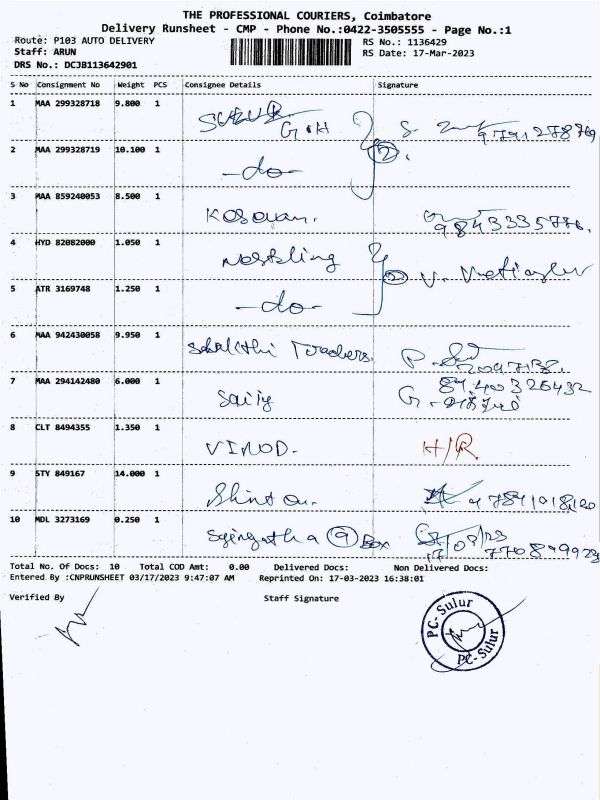 THE PROFESSIONAL COURIERS, Coimbatore
Delivery Runsheet - CMP - Phone No.:0422-3505555 - Page No.:1
Route: P103 AUTO DELIVERY
Staff: ARUN
DRS No.: DCJB113642901
RS No.: 1136429
RS Date: 17-Mar-2023
S No Consignment No Weight PCS Consignee Details Signature
1 MAA 299328718 9.800 1 G.H
2 MAA 299328719 10.100 1 -do- 2
3 MAA 859240053 8.500 1 Kosavan. 9843335776.
4 HYD 82082000 1.050 1 Nestling 2
5 ATR 3169748 1.250 1 -do-
6 MAA 942430058 9.950 1 Traders.
7 MAA 294142480 6.000 1 8740326432
8 CLT 8494355 1.350 1 VINOD. H/R
9 STY 849167 14.000 1
10 MDL 3273169 0.250 1 9 Box
Total No. Of Docs: 10 Total COD Amt: 0.00 Delivered Docs: Non Delivered Docs:
Entered By :CNPRUNSHEET 03/17/2023 9:47:07 AM Reprinted On: 17-03-2023 16:38:01
Verified By Staff Signature
PC-Sulur
PC-Sulur